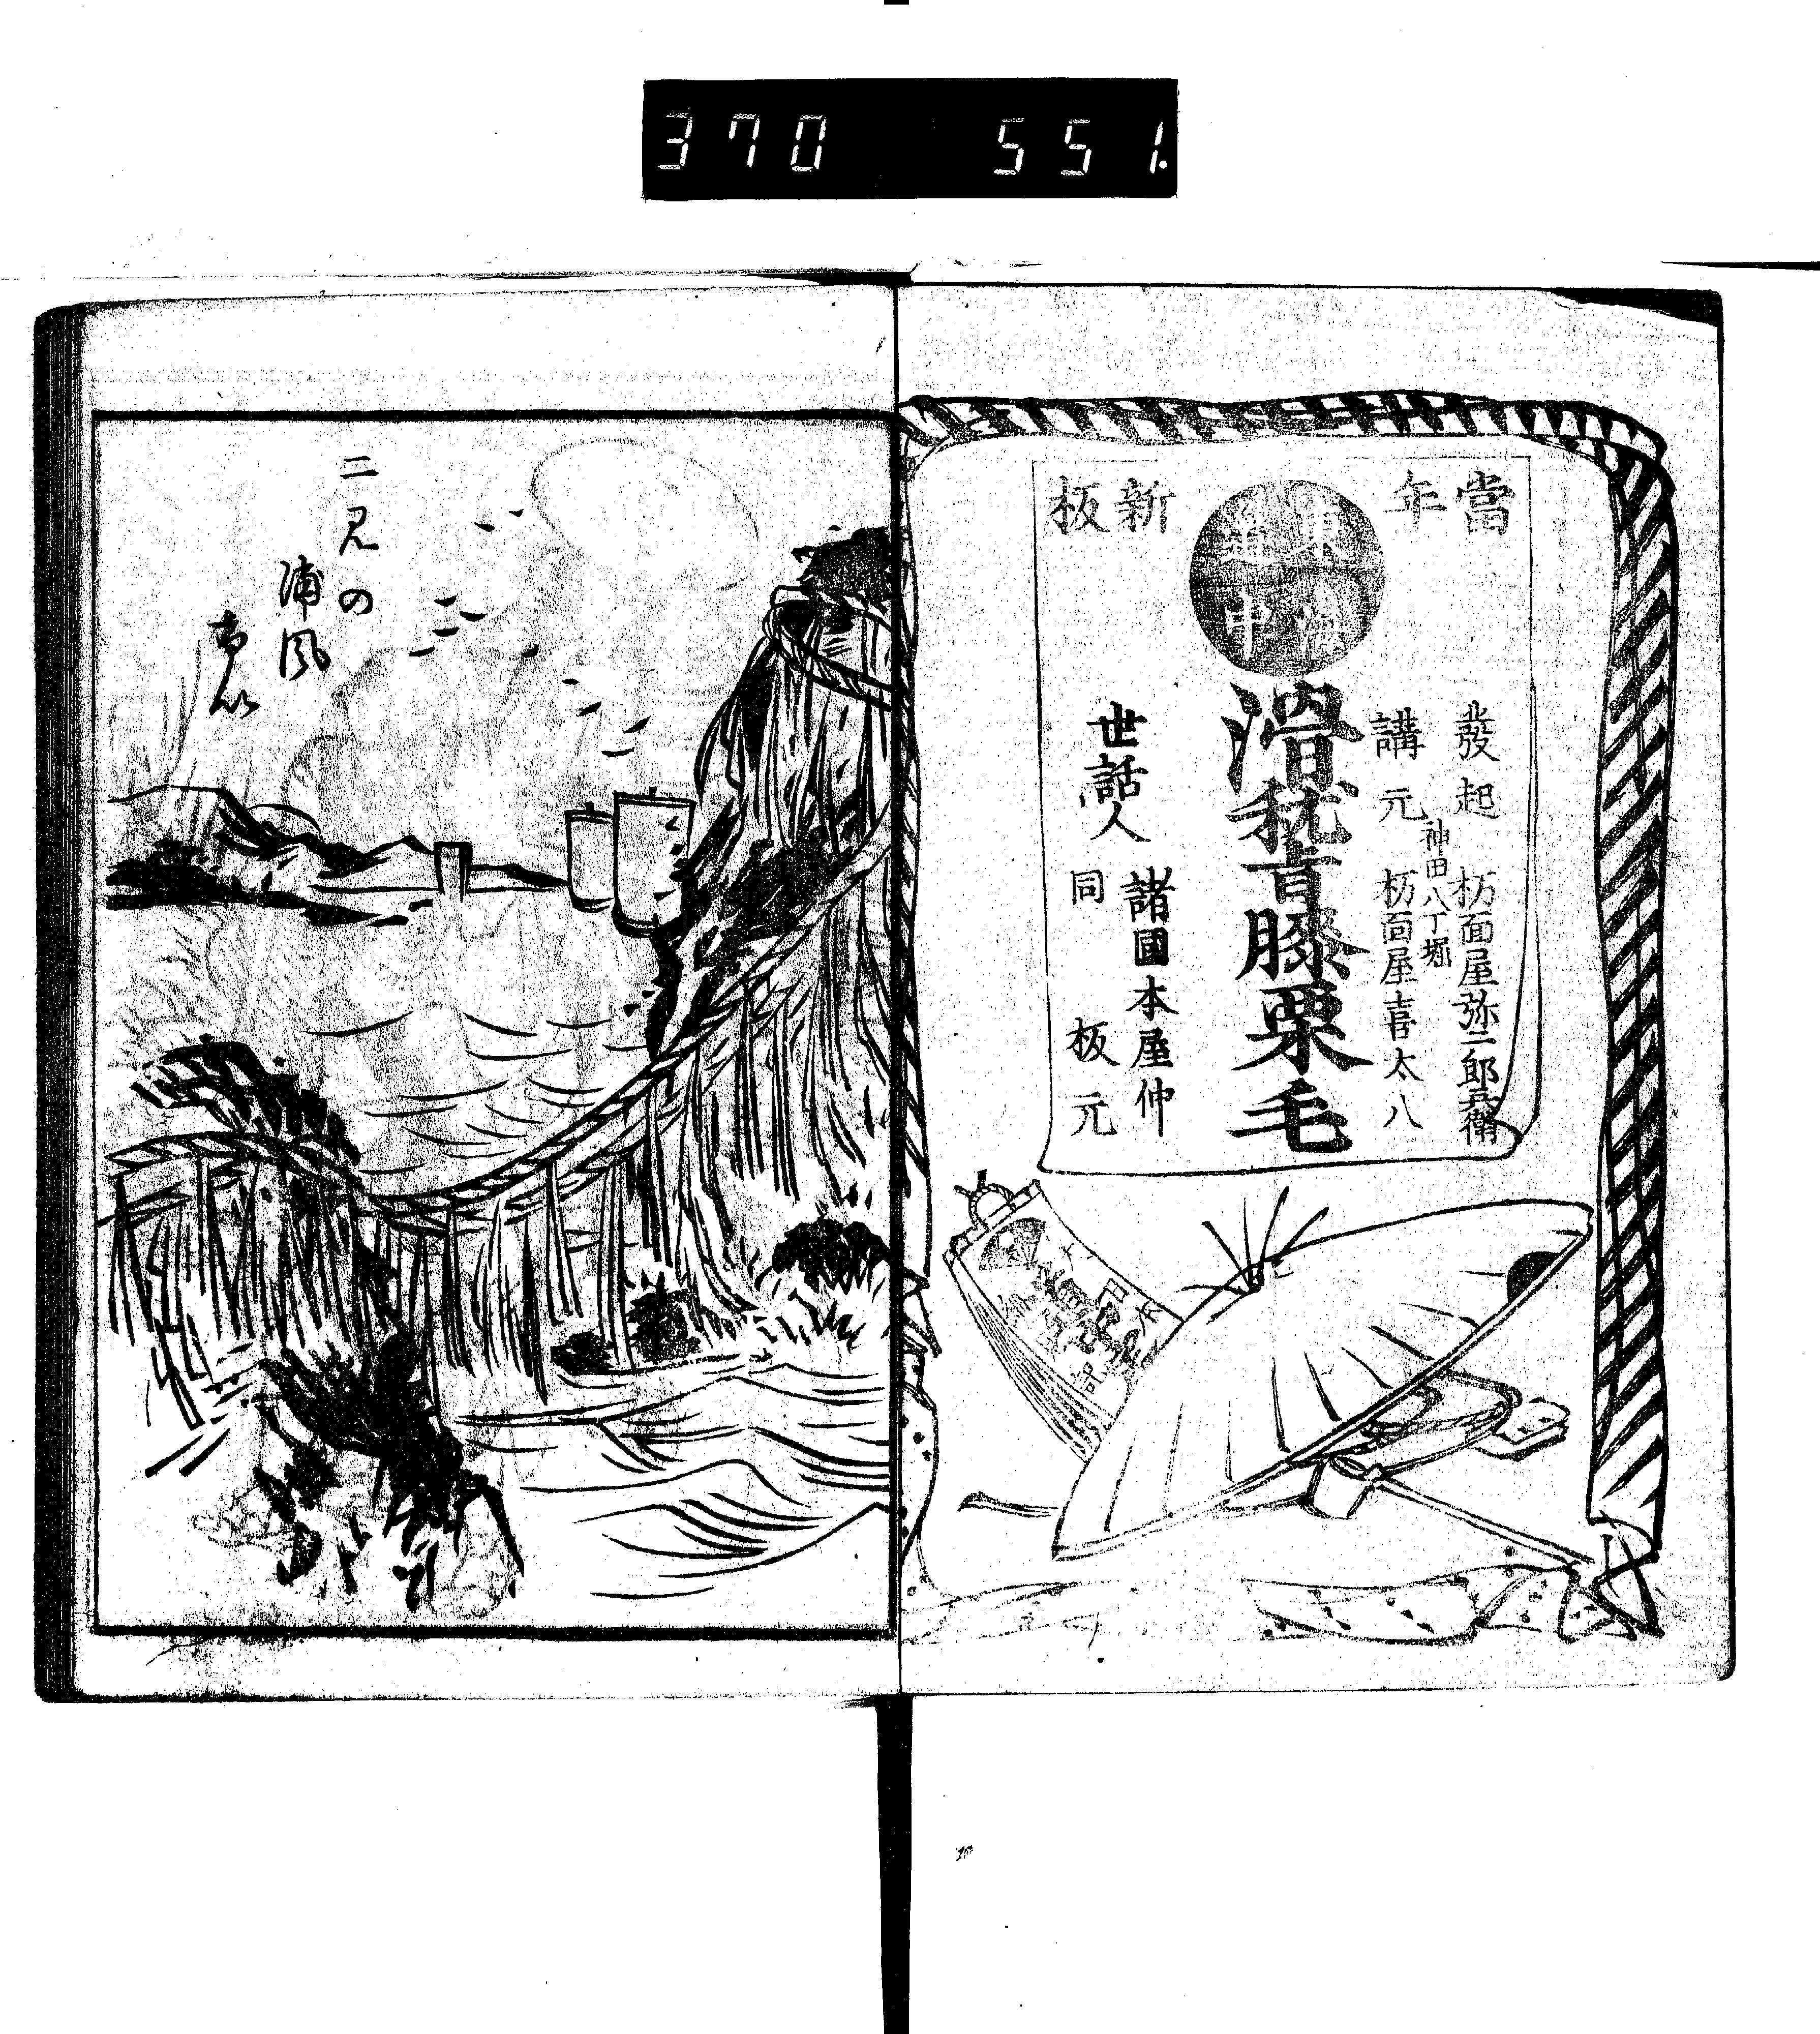 370 551.
當年
東海道中
新板
發起 栃面屋弥二郎兵衛
神田八丁堀
講元 栃面屋喜太八
滑稽膝栗毛
世話人 諸國本屋仲
同 板元
二見の
浦風